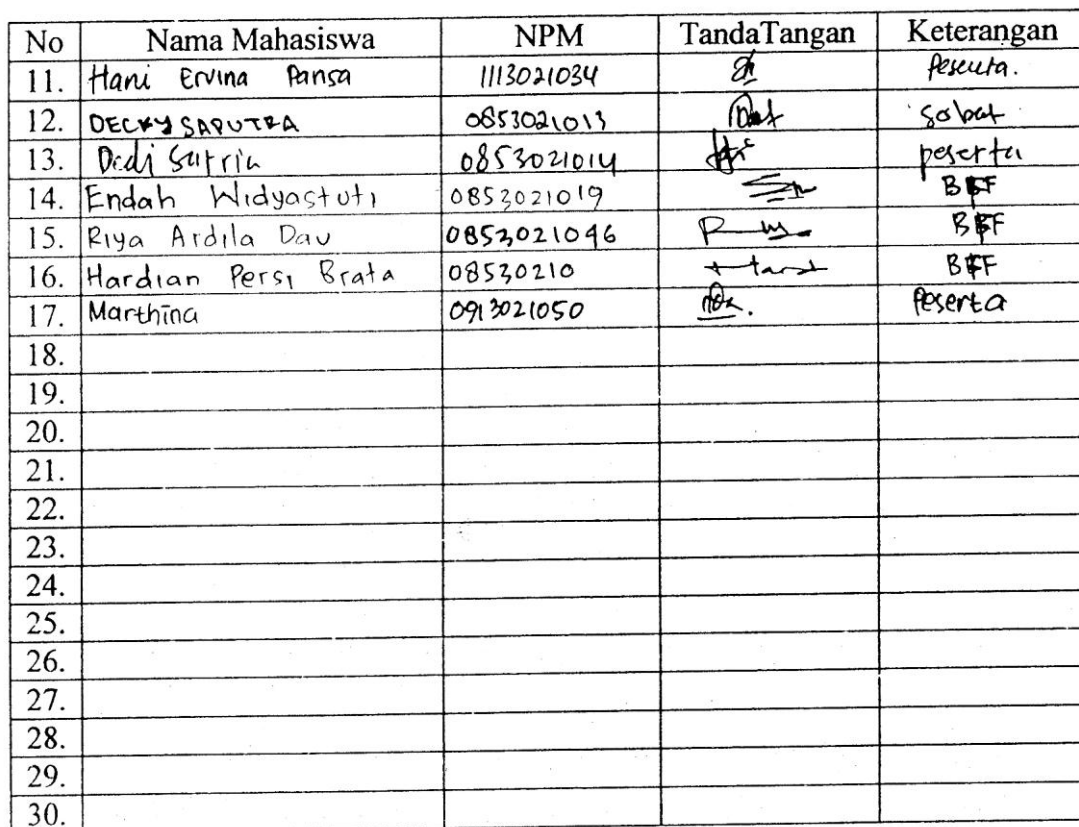 No Nama Mahasiswa NPM TandaTangan Keterangan
11. Hani Ervina Pansa 1113021034 Peserta.
12. DECKY SAPUTRA 0853021013 Sobat
13. Dedi Satria 0853021014 peserta
14. Endah Widyastuti 0853021019 BFF
15. Riya Ardila Dav 0853021046 BFF
16. Hardian Persi Brata 08530210 BFF
17. Marthina 0913021050 Peserta
18.
19.
20.
21.
22.
23.
24.
25.
26.
27.
28.
29.
30.